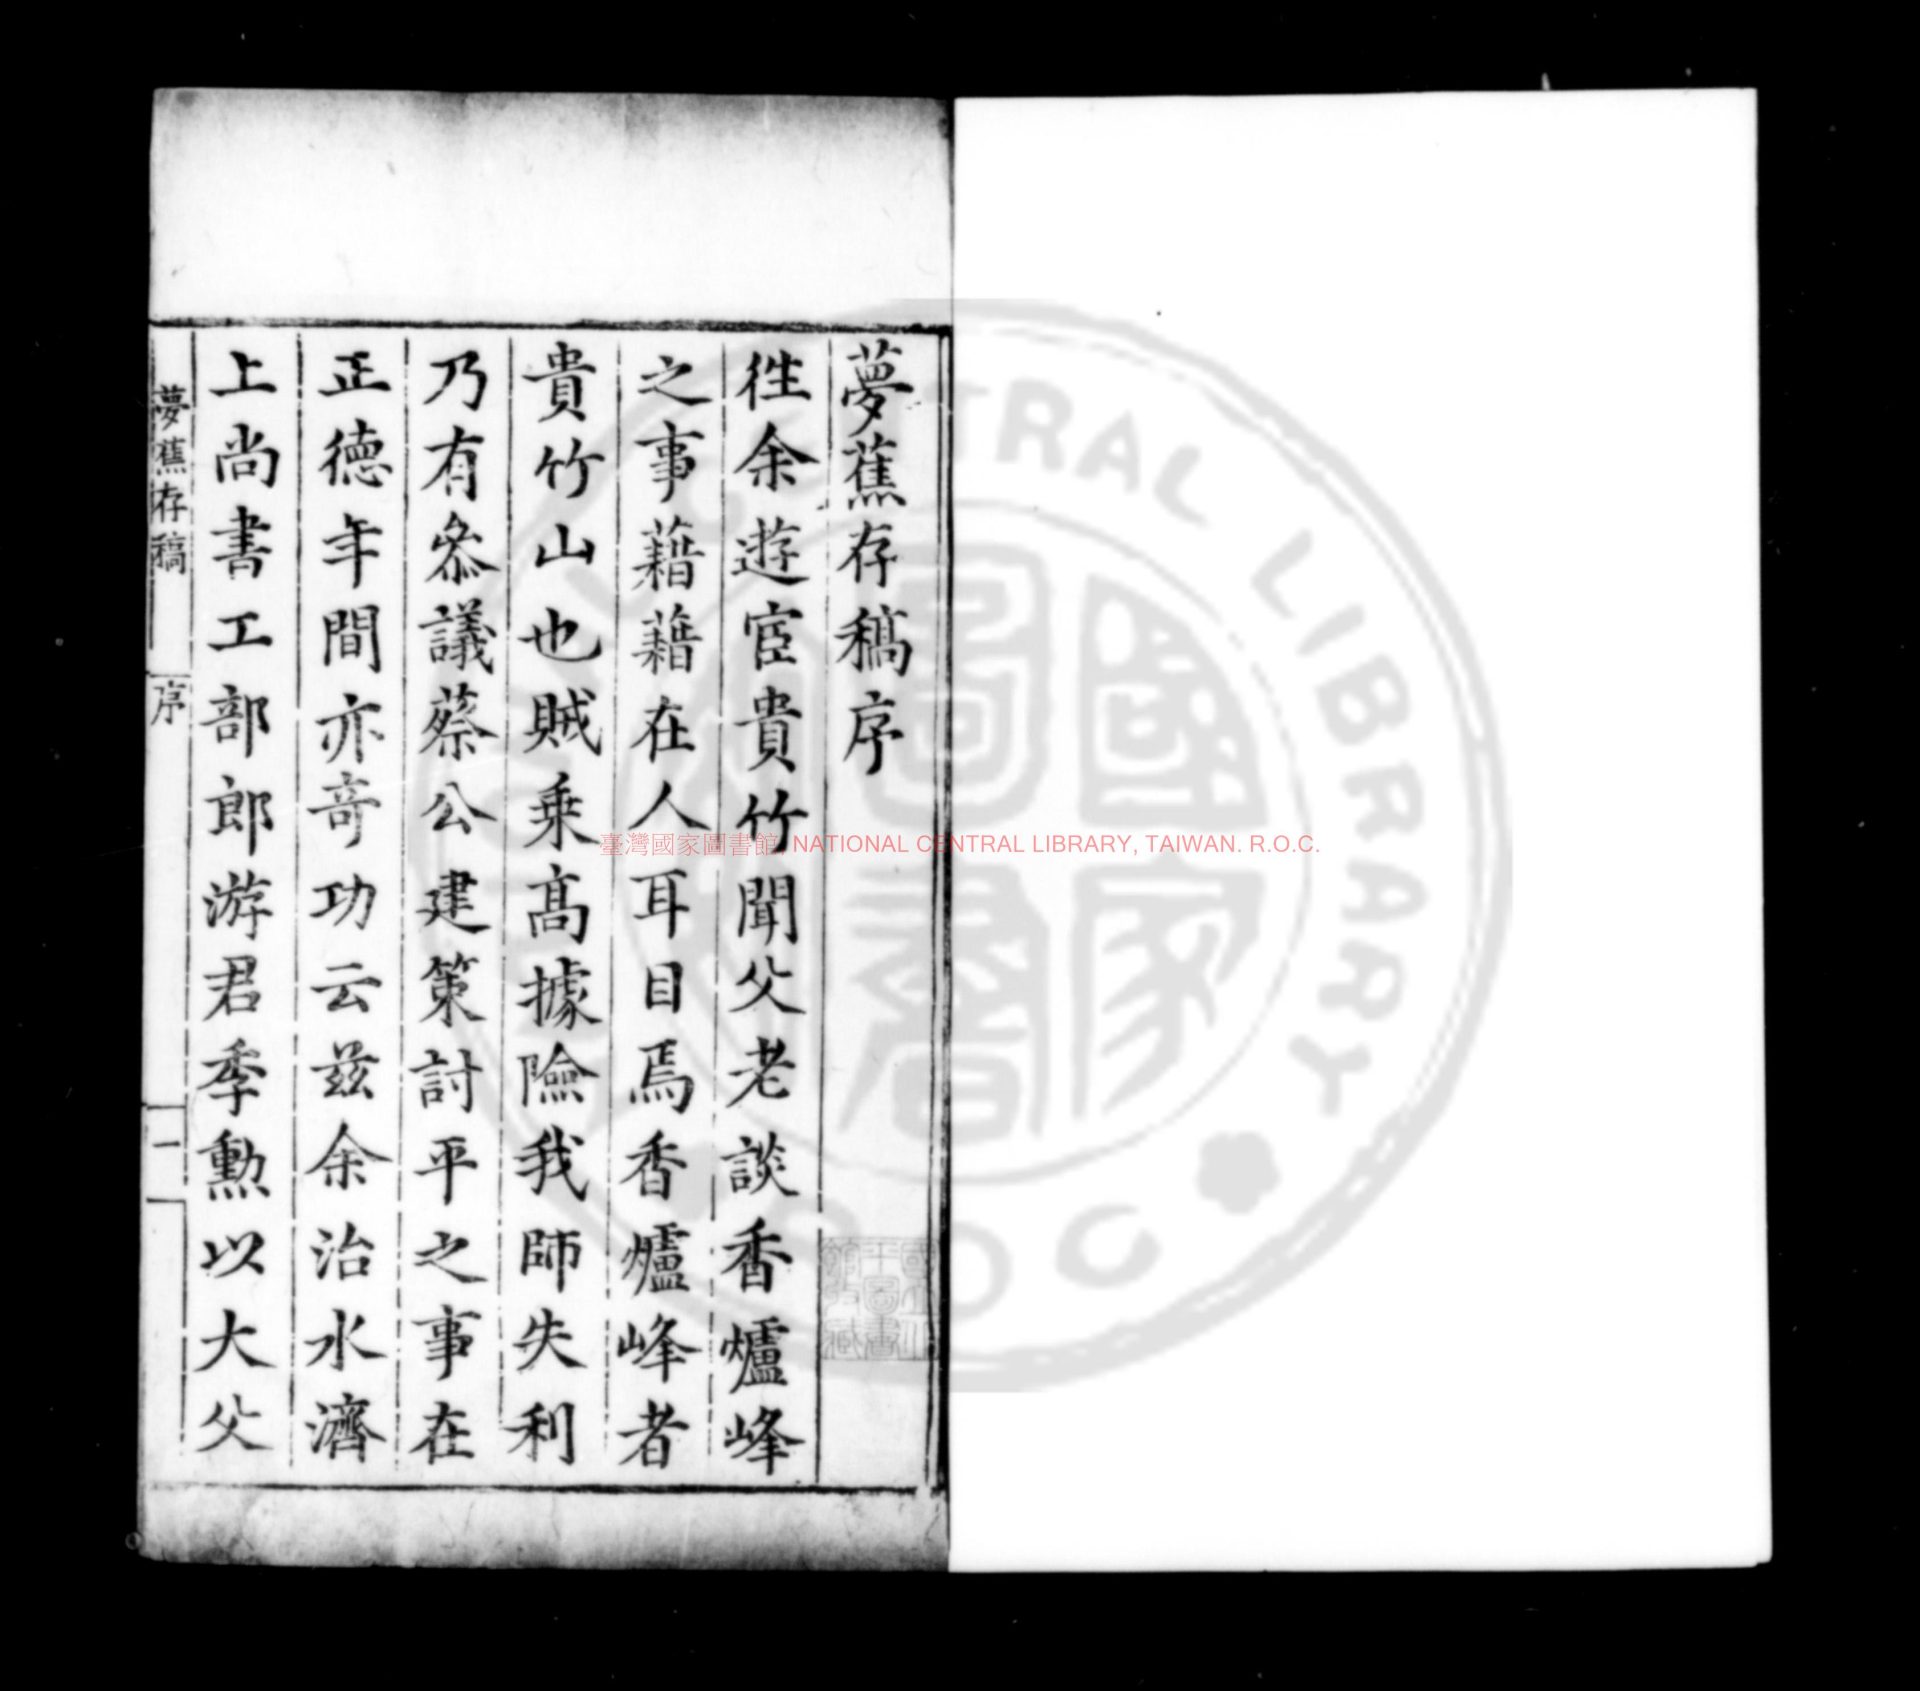 夢蕉存稿序
徃余遊宦貴竹聞父老談香爐峰
之事藉藉在人耳目焉香爐峰者
貴竹山也賊乗髙據險我師失利
乃有叅議蔡公建策討平之事在
正德年間亦竒功云兹余治水濟
上尚書工部郎游君季勲以大父
夢蕉存稿
序
一
臺灣國家圖書館, NATIONAL CENTRAL LIBRARY, TAIWAN. R.O.C.
CENTRAL LIBRARY
國家圖書